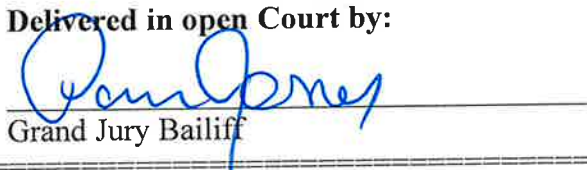 Delivered in open Court by:
Grand Jury Bailiff